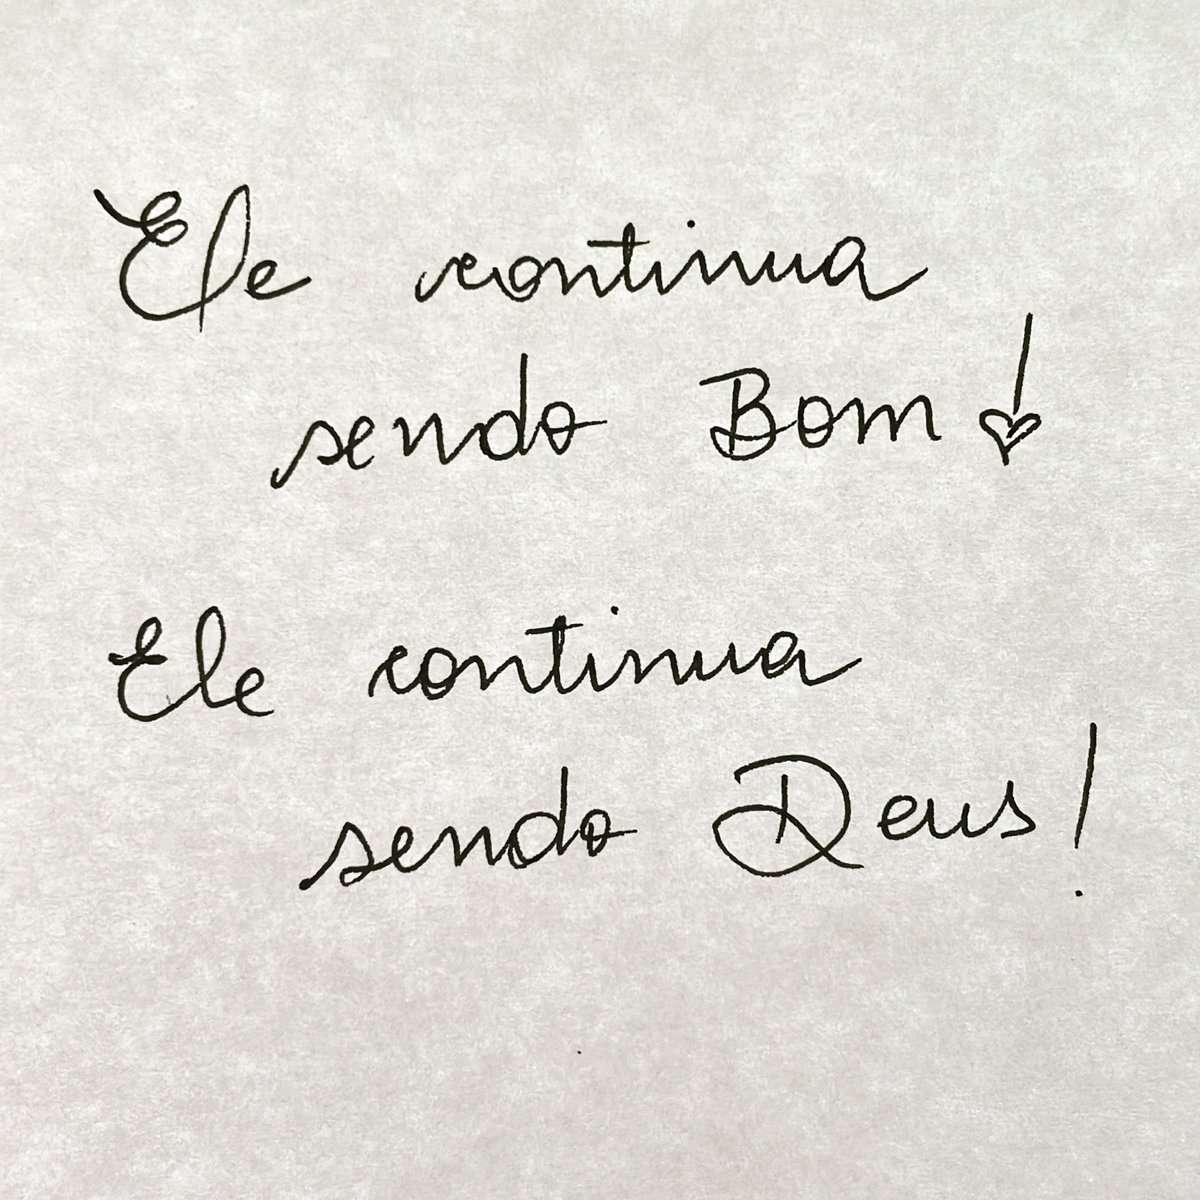 Ele continua
sendo Bom!
Ele continua
sendo Deus!